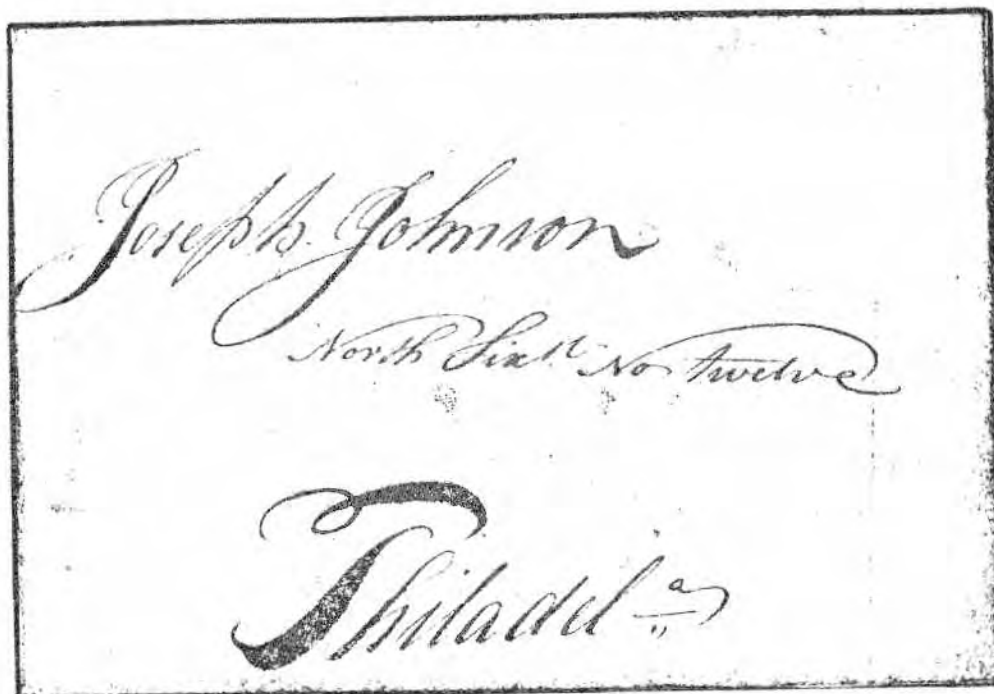 Joseph Johnson
North Sixth No twelve
Philadelᵃ